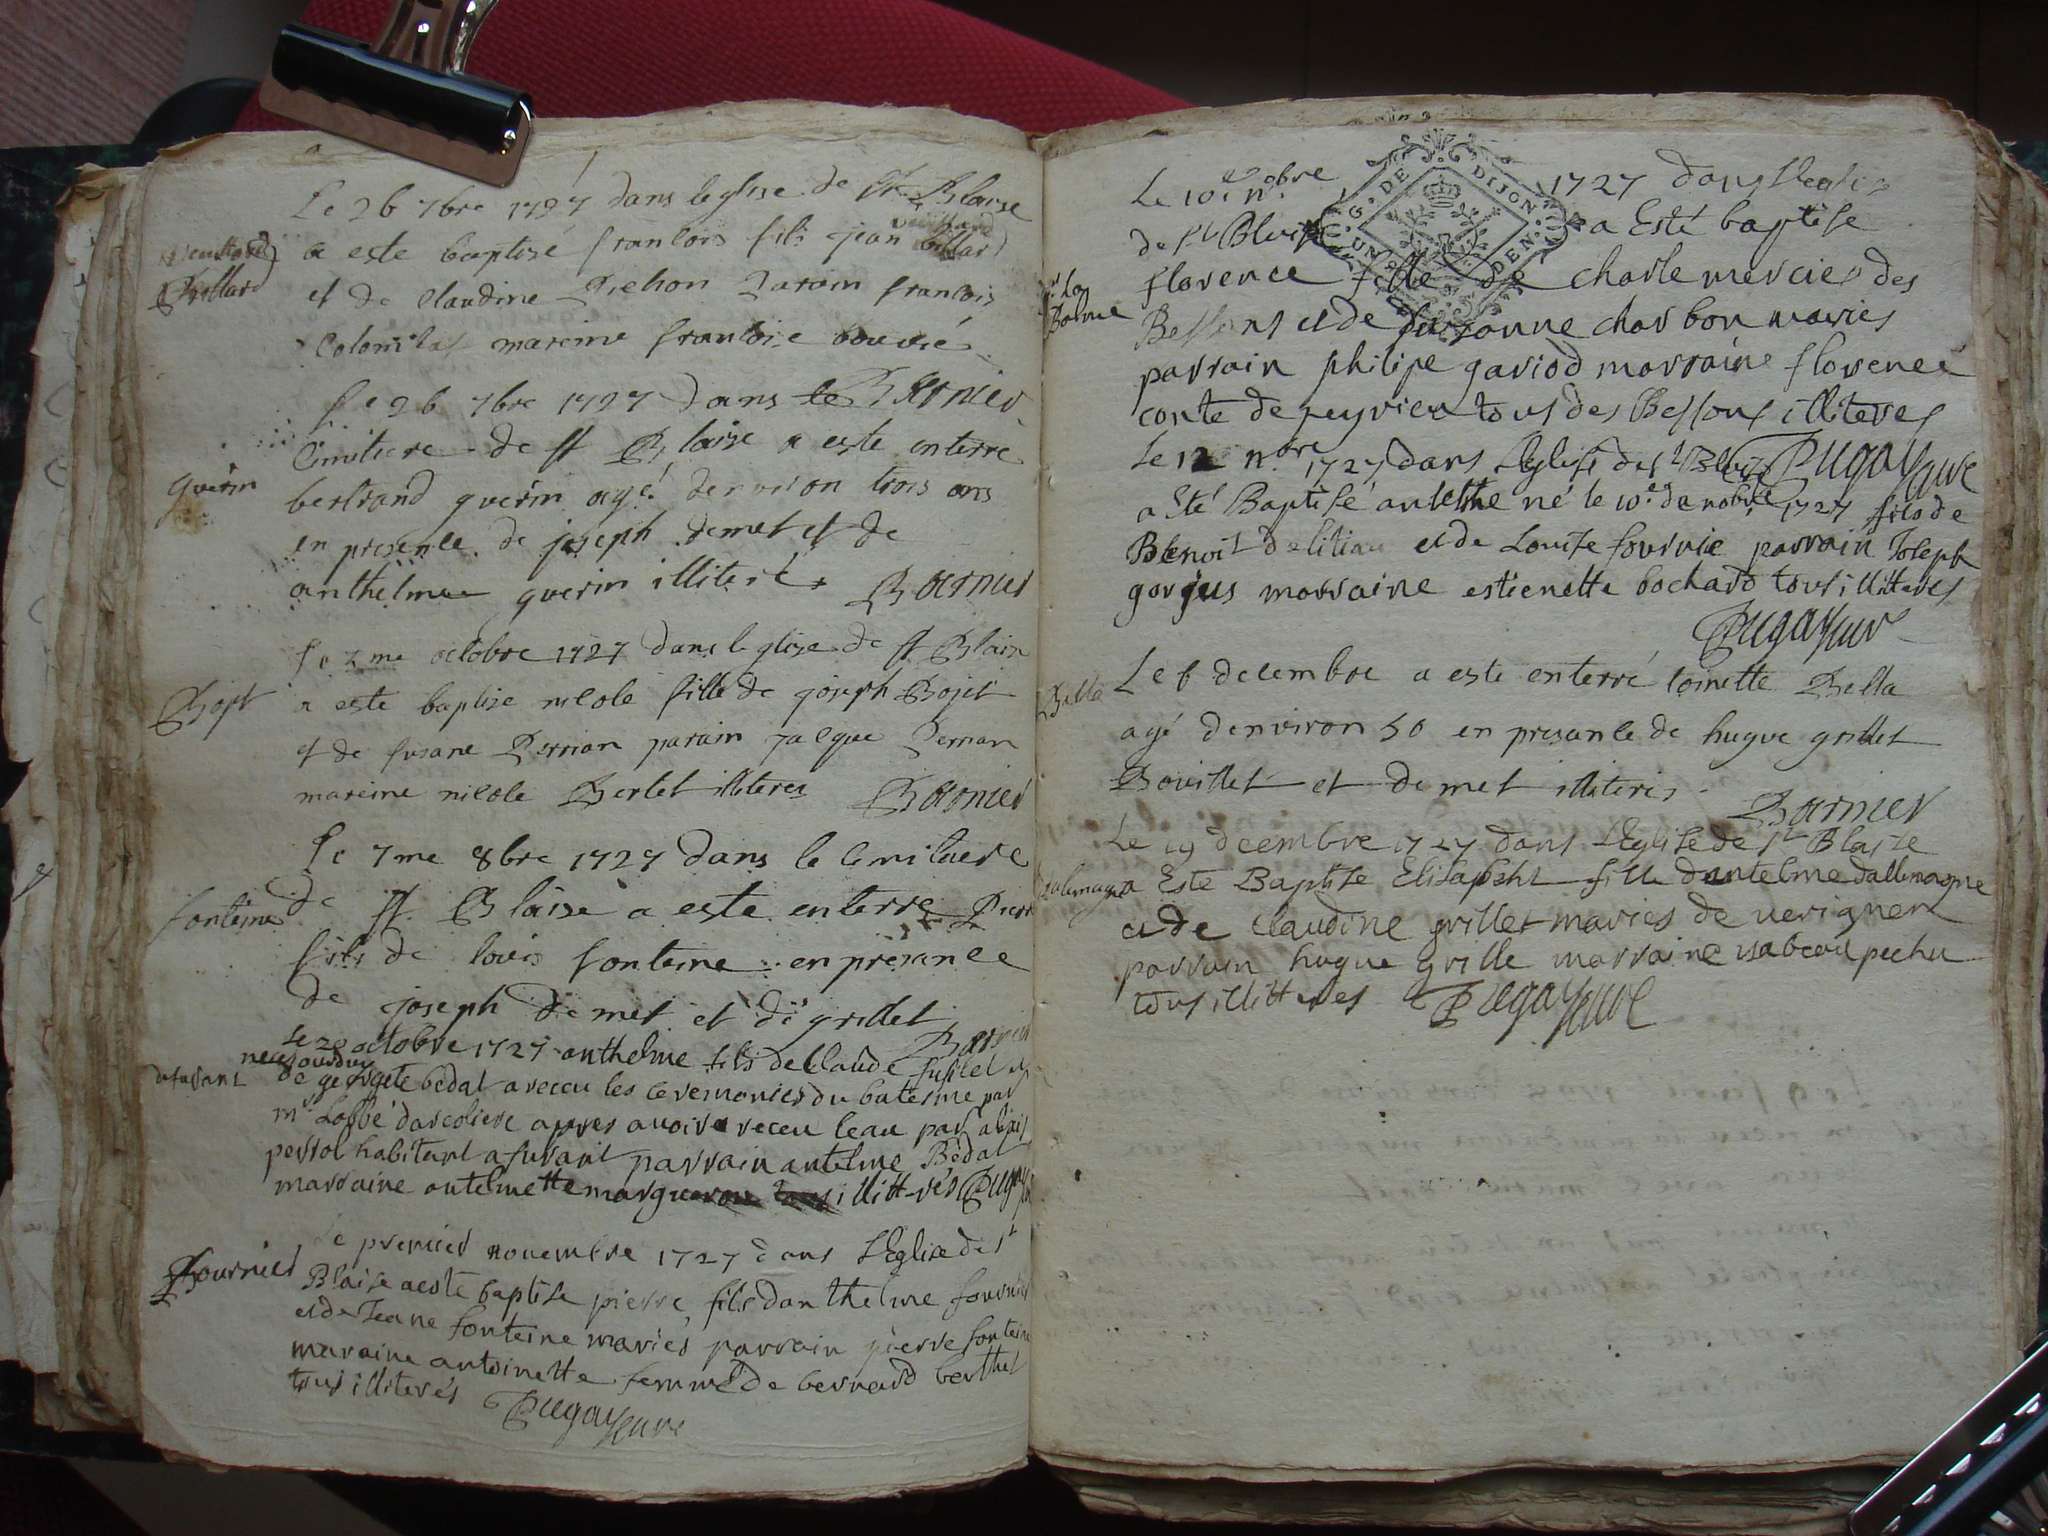 Le 26 7bre 1727 dans leglise de st Blaise
a este baptisé francois fils jean billard
Billard
et de claudine Pichon Parain francois
mareine francoise bouvié
Barnier
Le 26 7bre 1727 dans le
Cimitiere de st Blaise a este enterré
guerin
bertrand guerin agé denviron trois ans
en presence de joseph demet et de
anthelme guerin illiteré Barnier
Le 2me octobre 1727 dans leglise de st Blaise
Bojet
a este baptise nicole fille de joseph Bojet
et de susane Pernan parain jacque Pernan
mareine nicole Bertet illiteres Barnier
Le 7me 8bre 1727 dans le Cimitiere
fonteine
de st Blaise a este enterre Pierre
fils de louis fonteine en presance
de joseph demet et de grillet
Barnier
Le 20 octobre 1727 anthelme fils de Claude fusilet et
de georgete bedat a receu les ceremonies du bateme par
mr Labbé dascoliere apres avoir receu leau par
perrol habitant a furant parrain antelme Bedat
marraine antelmette illittérés Pugay
Le premier novembre 1727 dans LEglise de st
fournier
Blaise a este baptise pierre fils danthelme fournier
et de Jeane fonteine mariés parrain pierre fonteine
maraine antoinette femme de bernard berthet
tous illiterés Pugay curé
G. DE DIJON
UN DEN
Le 10e nobre 1727 dans Leglise
de st Blaise a Esté baptise
florence fille de charle mercier des
La Balme
Bessons et de suzanne charbon mariés
parrain philipe gariod marraine florence
conte de peyrieu tous des Bessons illiteres
Pugay curé
Le 12 nobre 1727 dans Leglise de st Blaise
a Esté Baptisé antelme né le 10e de nobre 1727 fils de
Benoit et de Louise fournie parrain Joseph
gorjus marraine estienette bochard tous illitteres
Pugay curé
Le 6 decembre a este enterré toinette Bella
Bella
agé denviron 50 en presance de hugue grillet
Bouillet et demet illiteris
Barnier
Le 19 decembre 1727 dans LEglise de st Blaise
dalemagne
a Este Baptise Elisabeht fille dantelme dallemagne
et de claudine grillet mariés de verignen
parrain hugue grille marraine isabeau pechu
tous illitteres Pugay curé